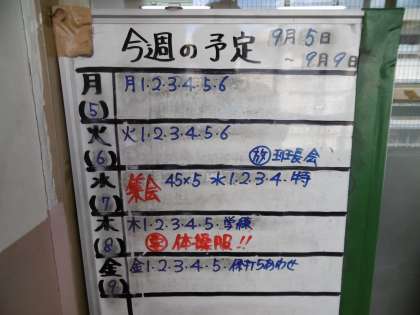 今週の予定 9月5日
～9月9日
月 月1・2・3・4・5・6
(5)
火 火1・2・3・4・5・6
(6) 放 班長会
水 集会 45×5 水1・2・3・4・特
(7)
木 木1・2・3・4・5・学練
(8) 体操服!!
金 金1・2・3・4・5・係打ちあわせ
(9)